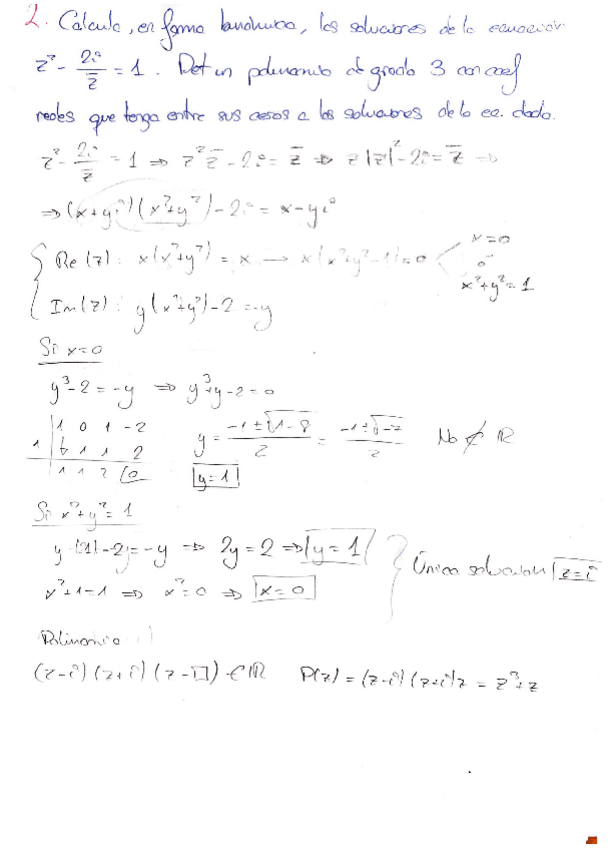 2. Calcula, en forma binómica, las soluciones de la ecuación
z² - 2i/z̄ = 1. Det un polinomio de grado 3 con coef
reales que tenga entre sus ceros a las soluciones de la ec. dada.
z² - 2i/z̄ = 1 ⇒ z² z̄ - 2i = z̄ ⇒ z|z|² - 2i = z̄ ⇒
⇒ (x+yi)(x²+y²) - 2i = x - yi
Re(z): x(x²+y²) = x → x(x²+y²-1) = 0 x=0
o
x²+y²=1
Im(z): y(x²+y²) - 2 = -y
Si x=0
y³-2 = -y ⇒ y³+y-2=0
1 0 1 -2
1 | 1 1 2
1 1 2 |0
y = (-1±√(1-8))/2 = (-1±√-7)/2 No ∉ ℝ
y=1
Si x²+y²=1
y·(1)-2 = -y ⇒ 2y=2 ⇒ y=1
x²+1=1 ⇒ x²=0 ⇒ x=0
Única solución z=i
Polinomio
(z-i)(z+i)(z-□) ∈ ℝ P(z) = (z-i)(z+i)z = z³+z